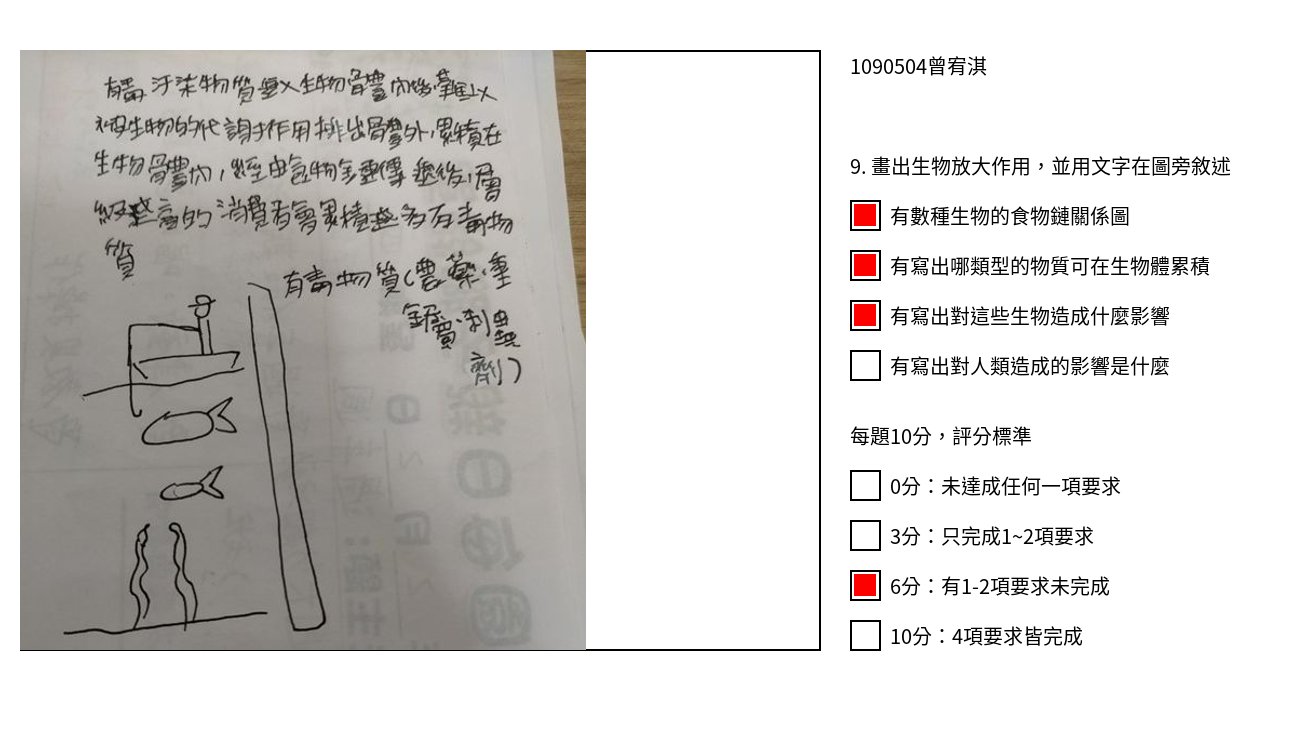 有毒汙染物質進入生物體內後,難以
被生物的代謝作用排出體外,累積在
生物體內,經由食物鏈傳遞後,層
級愈高的消費者會累積愈多有毒物
質
有毒物質(農藥、重
金屬、
劑)
1090504曾宥淇
9. 畫出生物放大作用,並用文字在圖旁敘述
有數種生物的食物鏈關係圖
有寫出哪類型的物質可在生物體累積
有寫出對這些生物造成什麼影響
有寫出對人類造成的影響是什麼
每題10分,評分標準
0分:未達成任何一項要求
3分:只完成1~2項要求
6分:有1-2項要求未完成
10分:4項要求皆完成